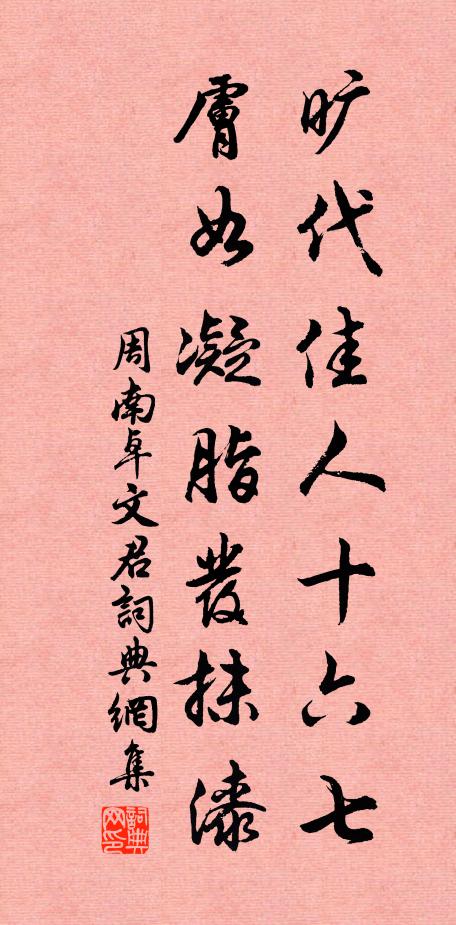 旷代佳人十六七
膚如凝脂發抹漆
周南卓文君詞典網集
詞典网印